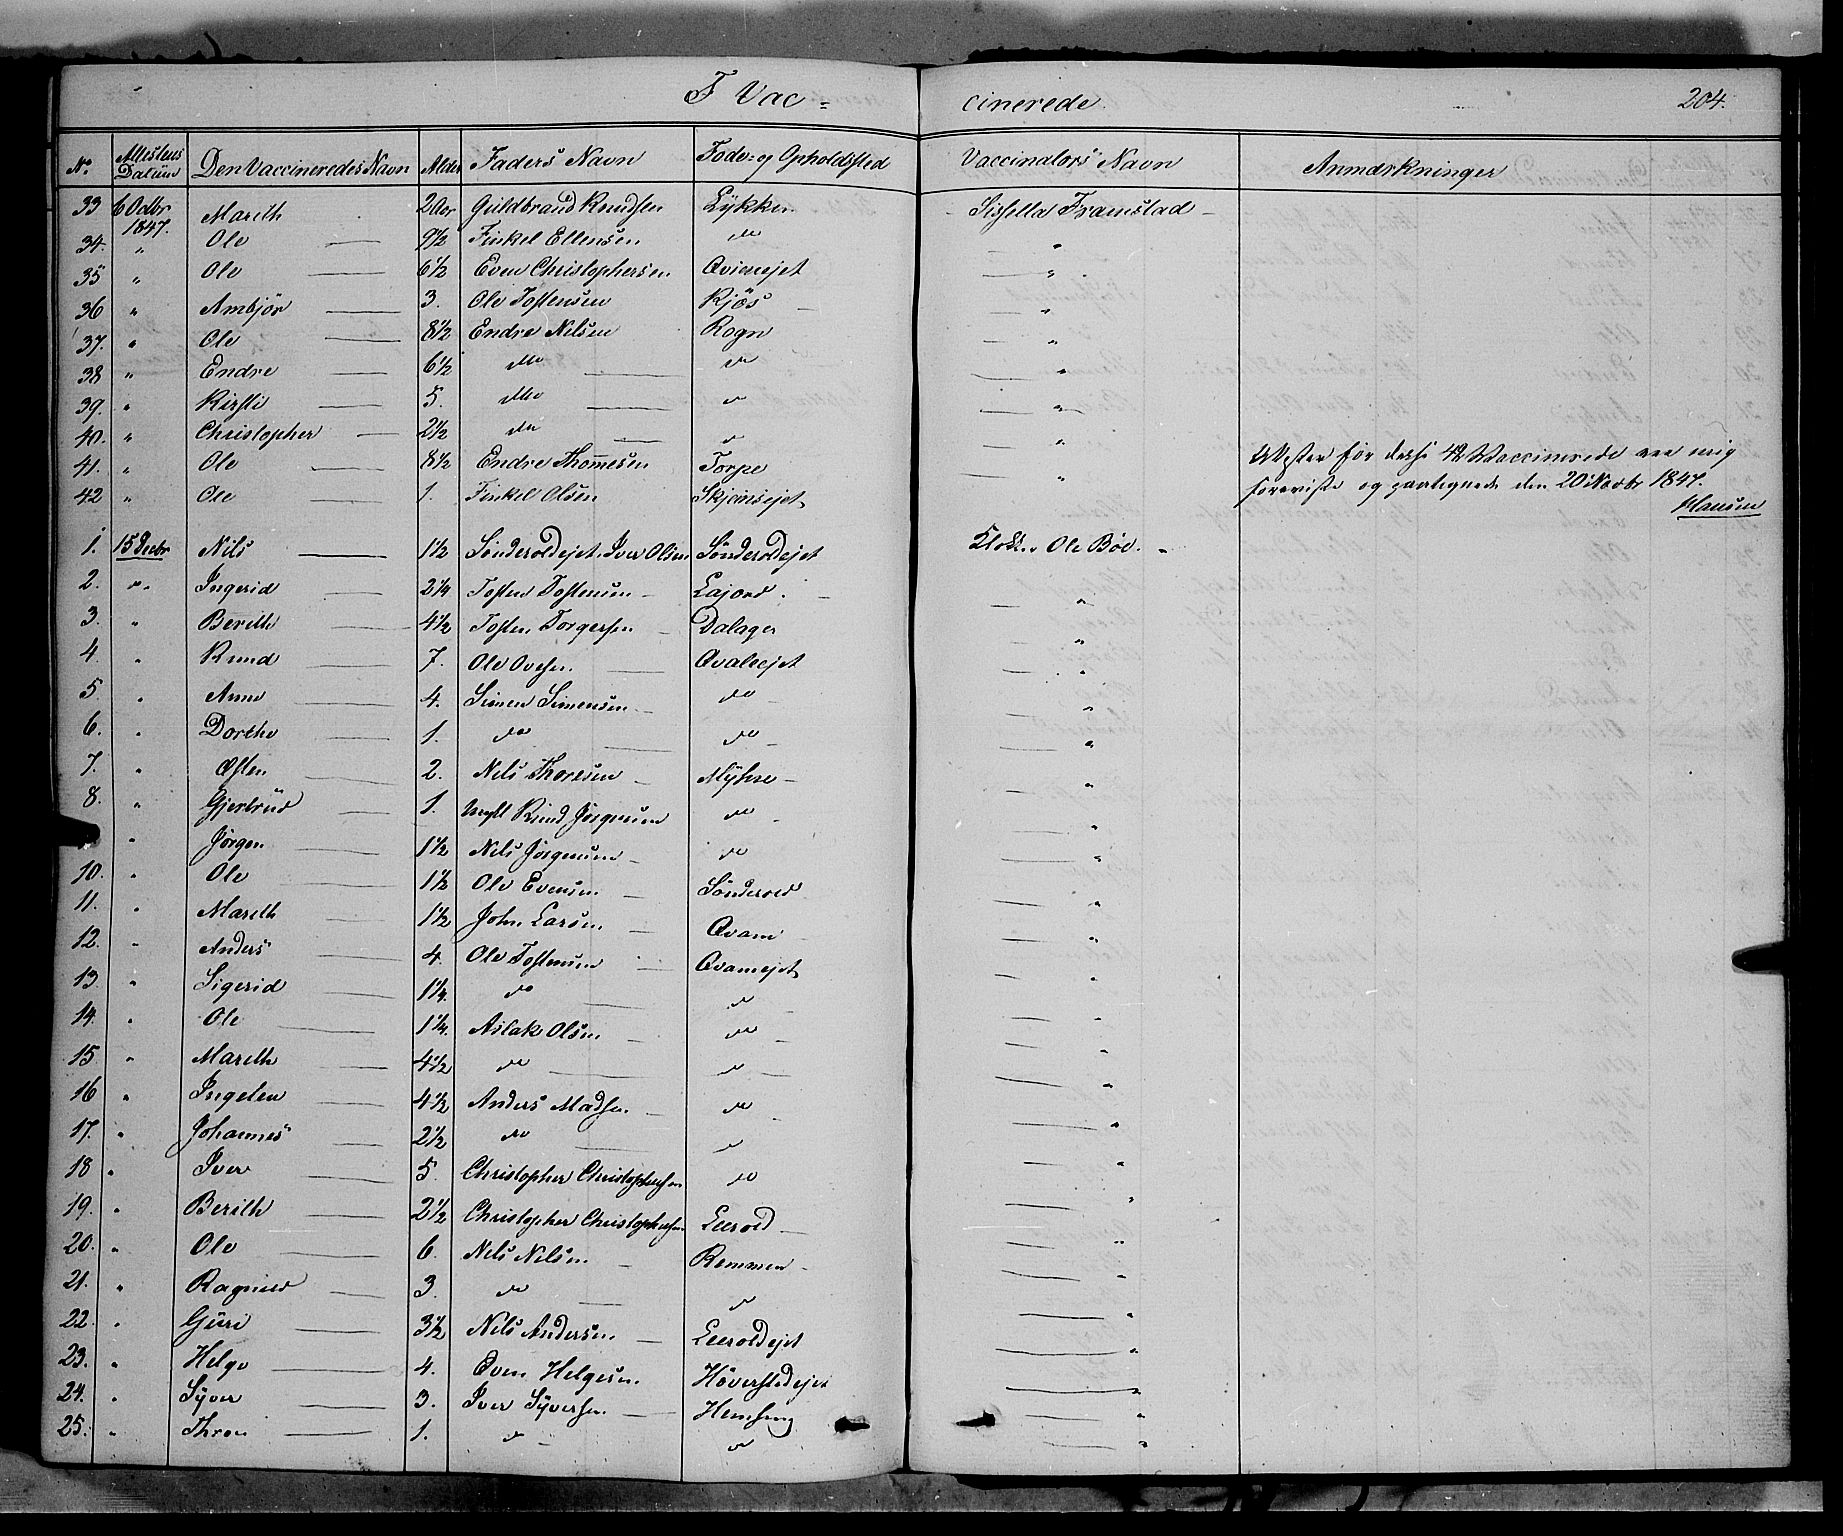 F Vac= cinerede. 204.
No Attestens Datum Den Vaccineredes Navn Alder Faders Navn Føde- og Opholdsted Vaccinators Navn Anmærkninger
33 6 Octbr 1847. Marith 2 Aar Guldbrand Knudsen Lykken Sissella Framstad
34. " Ole 9½ Finkel Ellensen do "
35 " Ole 6½ Even Christophersen Qviensejet "
36 " Ambjør 3. Ole Tostensen Kjös "
37. " Ole 8½ Endre Nilsen Rogn "
38 " Endre 6½ do do "
39. " Kirsti 5. do " "
40. " Christopher 2½ do " "
41. " Ole 8½ Endre Thomesen Torpe "
42 " Ole 1. Finkel Olsen "
Attester for disse 42 Vaccinerede ere mig
foreviste og paategnede den 20 Novbr 1847.
Hansen
1. 15 Decbr Nils 1½ Sönderoldejet. Iver Olsen Sönderoldejet Klokk. Ole Böe.
2. " Ingerid 2¼ Tosten Tostensen Lajord. "
3. " Berith 4½ Tosten Torgersen Dalager "
4. " Knud 7. Ole Ovesen Qvalsejet "
5. " Anne 4. Simen Simensen do "
6. " Dorthe 1. do do "
7. " Østen 2. Nils Thoresen Myhre "
8. " Gjertrud 1. Knud Jörgensen do "
" Jörgen 1½ Nils Jörgensen do "
10. " Ole 1½ Ole Evensen Sönderold "
11. " Marith 1½ John Larsen Qvam "
12. " Anders 4. Ole Tostensen Qvamsejet "
13. " Sigerid 1¼. do " "
14. " Ole 1¼. Aslak Olsen do "
15 " Marith 4½ do " "
16 " Ingelen 4½ Anders Madsen do "
17. " Johannes 2½ do " "
18 " Iver 5. Christopher Christophersen do "
19. " Berith 2½ Christopher Christophersen Leerold "
20. " Ole 6. Nils Nilsen Remmen "
21. " Ragnild 3. do " "
22. " Guri 3½ Nils Andersen Leeroldejet "
23. " Helge 4. Even Helgesen Höverstedejet "
24. " Syver 3. Iver Syversen Hemsing "
25. " Thron 1. " " "